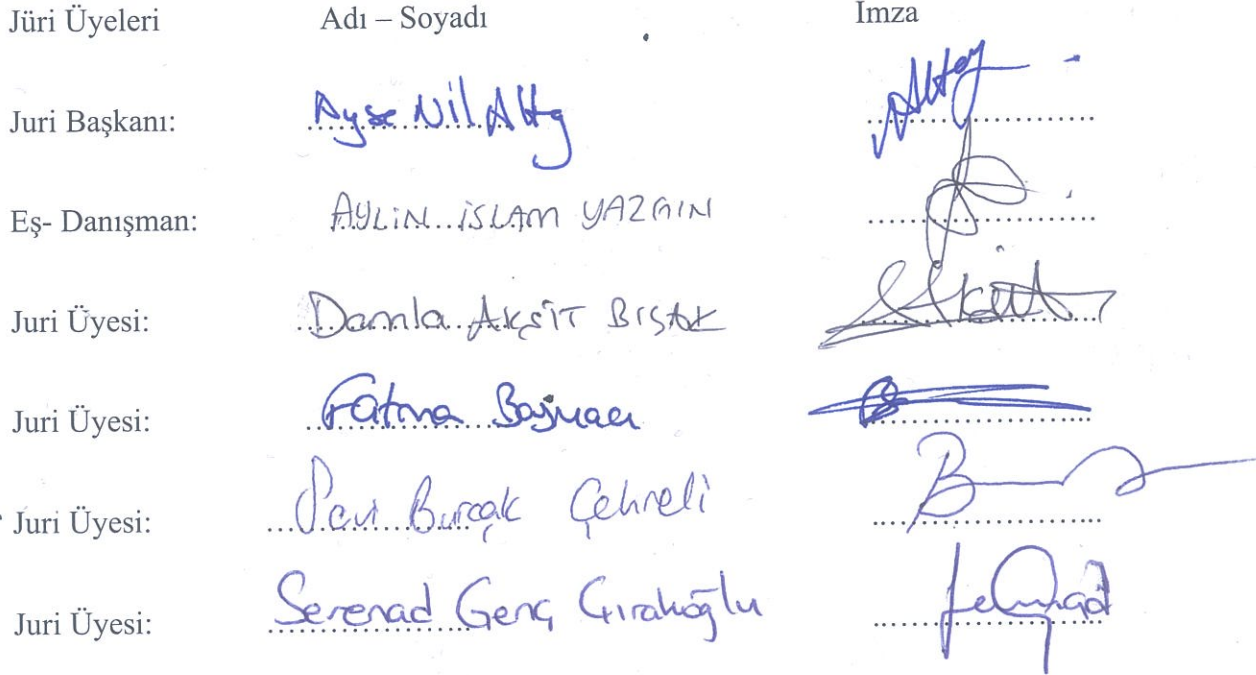 Jüri Üyeleri Adı – Soyadı İmza
Juri Başkanı: Ayşe Nil Altay Altay
Eş- Danışman: AYLİN İSLAM YAZGIN
Juri Üyesi: Damla AKŞİT BIÇAK
Juri Üyesi: Fatma Bağmacı
Juri Üyesi: Burçak Çehreli
Juri Üyesi: Serenad Genç Çırakoğlu